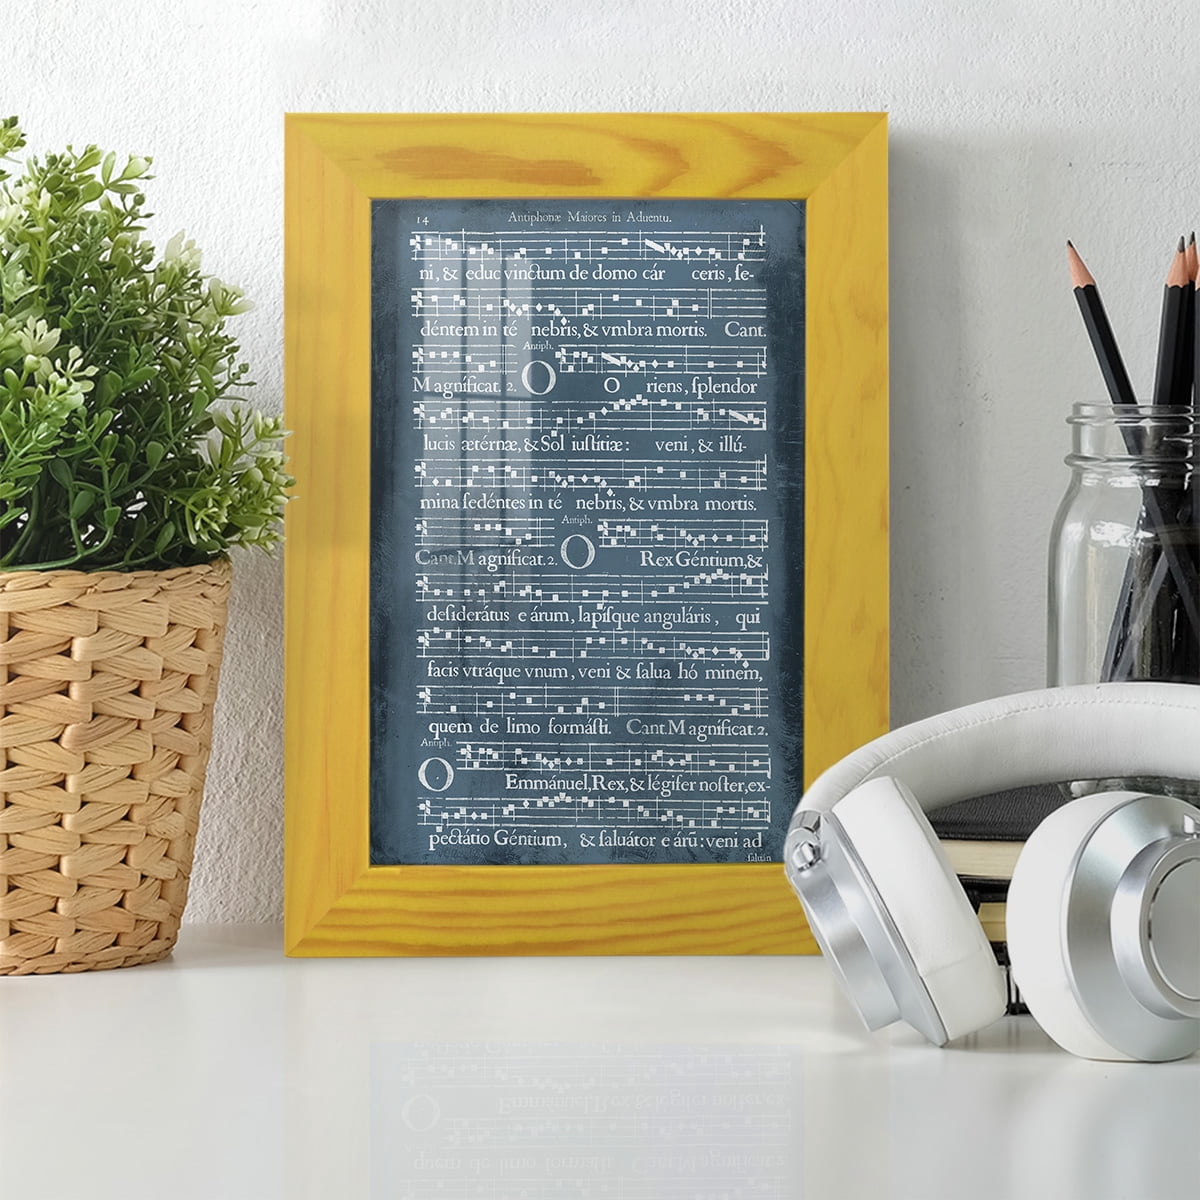 14 Antiphonæ Maiores in Aduentu.
ni, & educ vinctum de domo cár ceris, ſe-
déntem in té nebris, & vmbra mortis. Cant.
Antiph.
Magnificat. 2. O O riens, ſplendor
lucis ætérnæ, & Sol iuſtitiæ: veni, & illú-
mina ſedéntes in té nebris, & vmbra mortis.
Antiph.
Cant. Magnificat. 2. O Rex Géntium, &
deſiderátus eárum, lapíſque anguláris, qui
facis vtráque vnum, veni & ſalua hó minem,
quem de limo formáſti. Cant. Magnificat. 2.
Antiph.
O Emmánuel, Rex, & légifer noſter, ex-
pectátio Géntium, & ſaluátor eárũ: veni ad